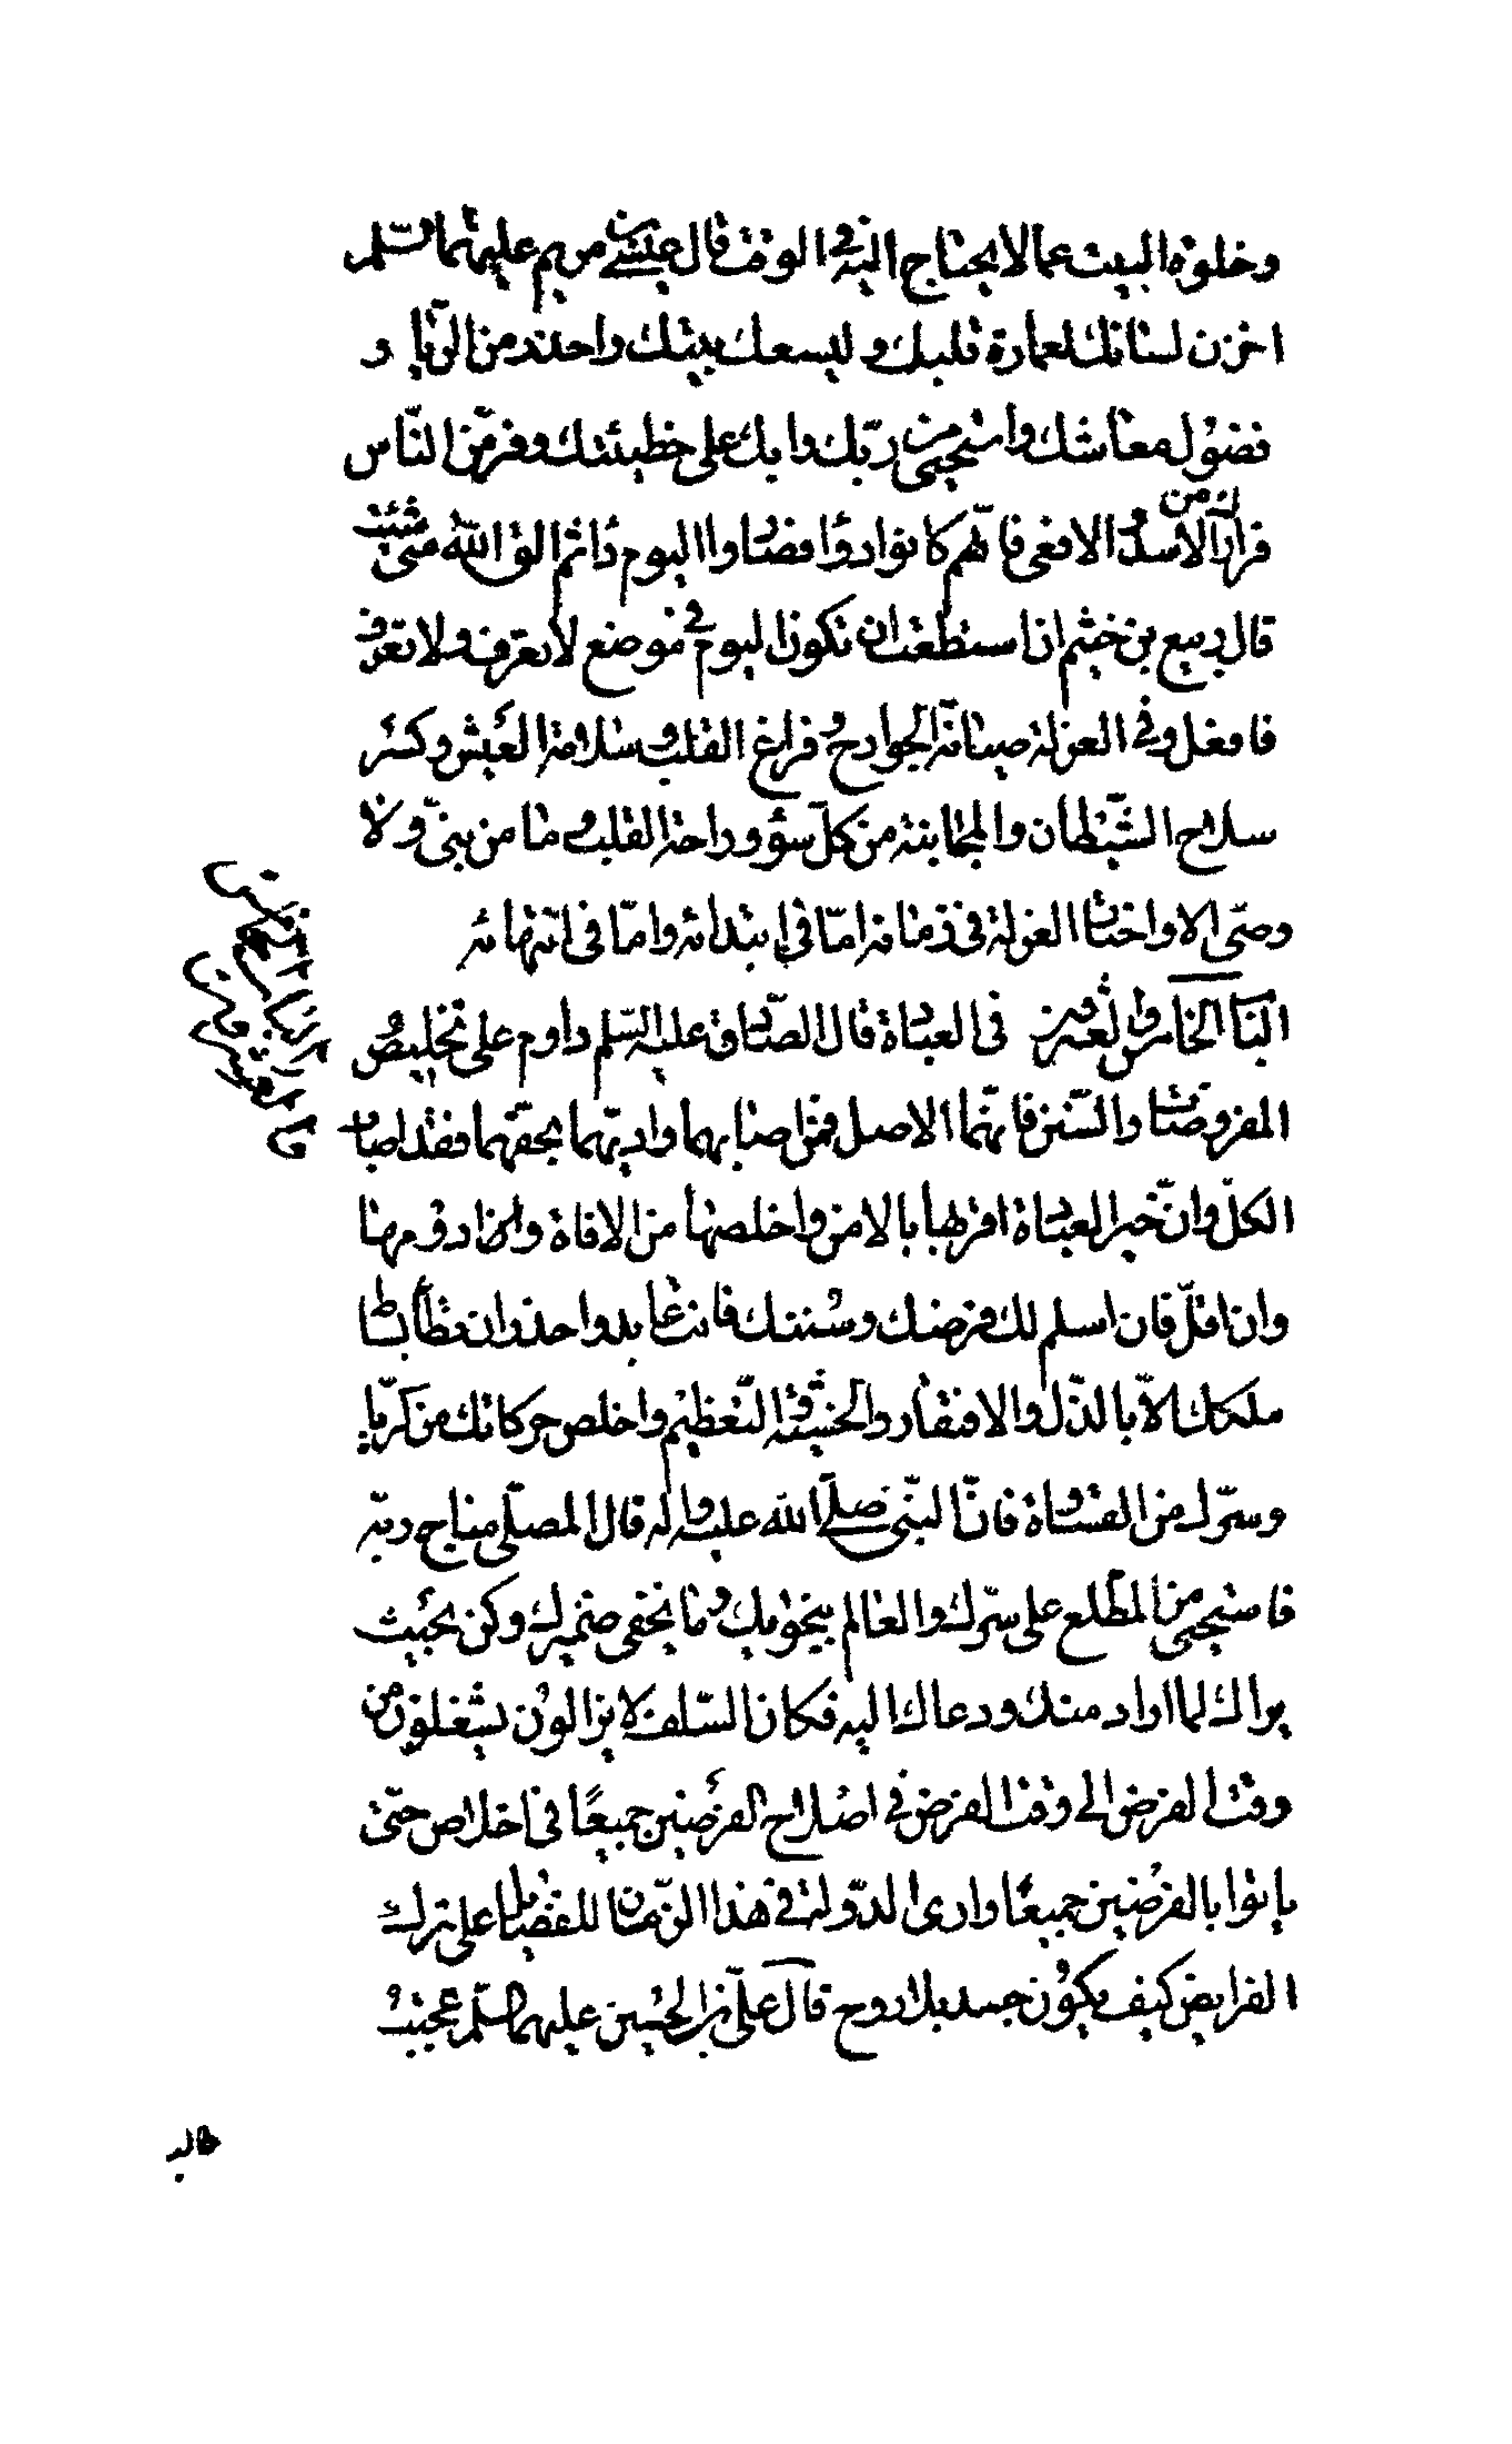 وخلوة البيت عما لا يحتاج اليه في الوقت قال عيسى بن مريم عليهما السّلم
اخزن لسانك لعمارة قلبك وليسعك بيتك واحذر من الرّيا و
فضول معاشك واستحيي من ربّك وابك على خطيئتك وفرّ من النّاس
فرارك من الاسد و الافعى فانّهم كانوا دواء فصاروا اليوم داء ثم الق الله متى شئت
قال ربيع بن خثيم ان استطعت ان تكون اليوم في موضع لا تعرف ولا تعرف
فافعل وفي العزلة صيانة الجوارح و فراغ القلب و سلامة العيش وكسر
سلاح الشّيطان والمجانبة من كلّ سوء وراحة القلب و ما من نبيّ ولا
وصيّ الا واختار العزلة في زمانه امّا في ابتدائه وامّا في انتهائه
الباب الخامس والعشرون في العبادة قال الصّادق عليه السّلم داوم على تخليص
المفروضات والسّنن فانّهما الاصل فمن اصابهما وادّيهما بحقّهما فقد اصاب
الكلّ وانّ خير العبادة اقربها بالامن واخلصها من الافاة وادومها
وان اقلّ فان اسلم لك فرضك وسُنتك فانت عابد واحذر ان تطأ بساط
ملكك الّا بالذّل والافتقار والخشية و التّعظيم واخلص حركاتك من الرّيا
وسرّك من القساوة فانّ النّبي صلّى الله عليه واله قال المصلّي مناج ربّه
فاستحيي من المطّلع على سرّك والعالم بنجويك و ما يخفى ضميرك وكن بحيث
يراك لما اراد منك ودعاك اليه فكان السّلف لا يزالون يشغلون من
وقت الفرض الى وقت الفرض في اصلاح الفرضين جميعًا في اخلاص حتّى
ياتوا بالفرضين جميعًا وارى الدّولة في هذا الزّمان للفضايل على ترك
الفرايض كيف يكون جسد بلا روح قال عليّ بن الحسين عليهما السّلم عجبت